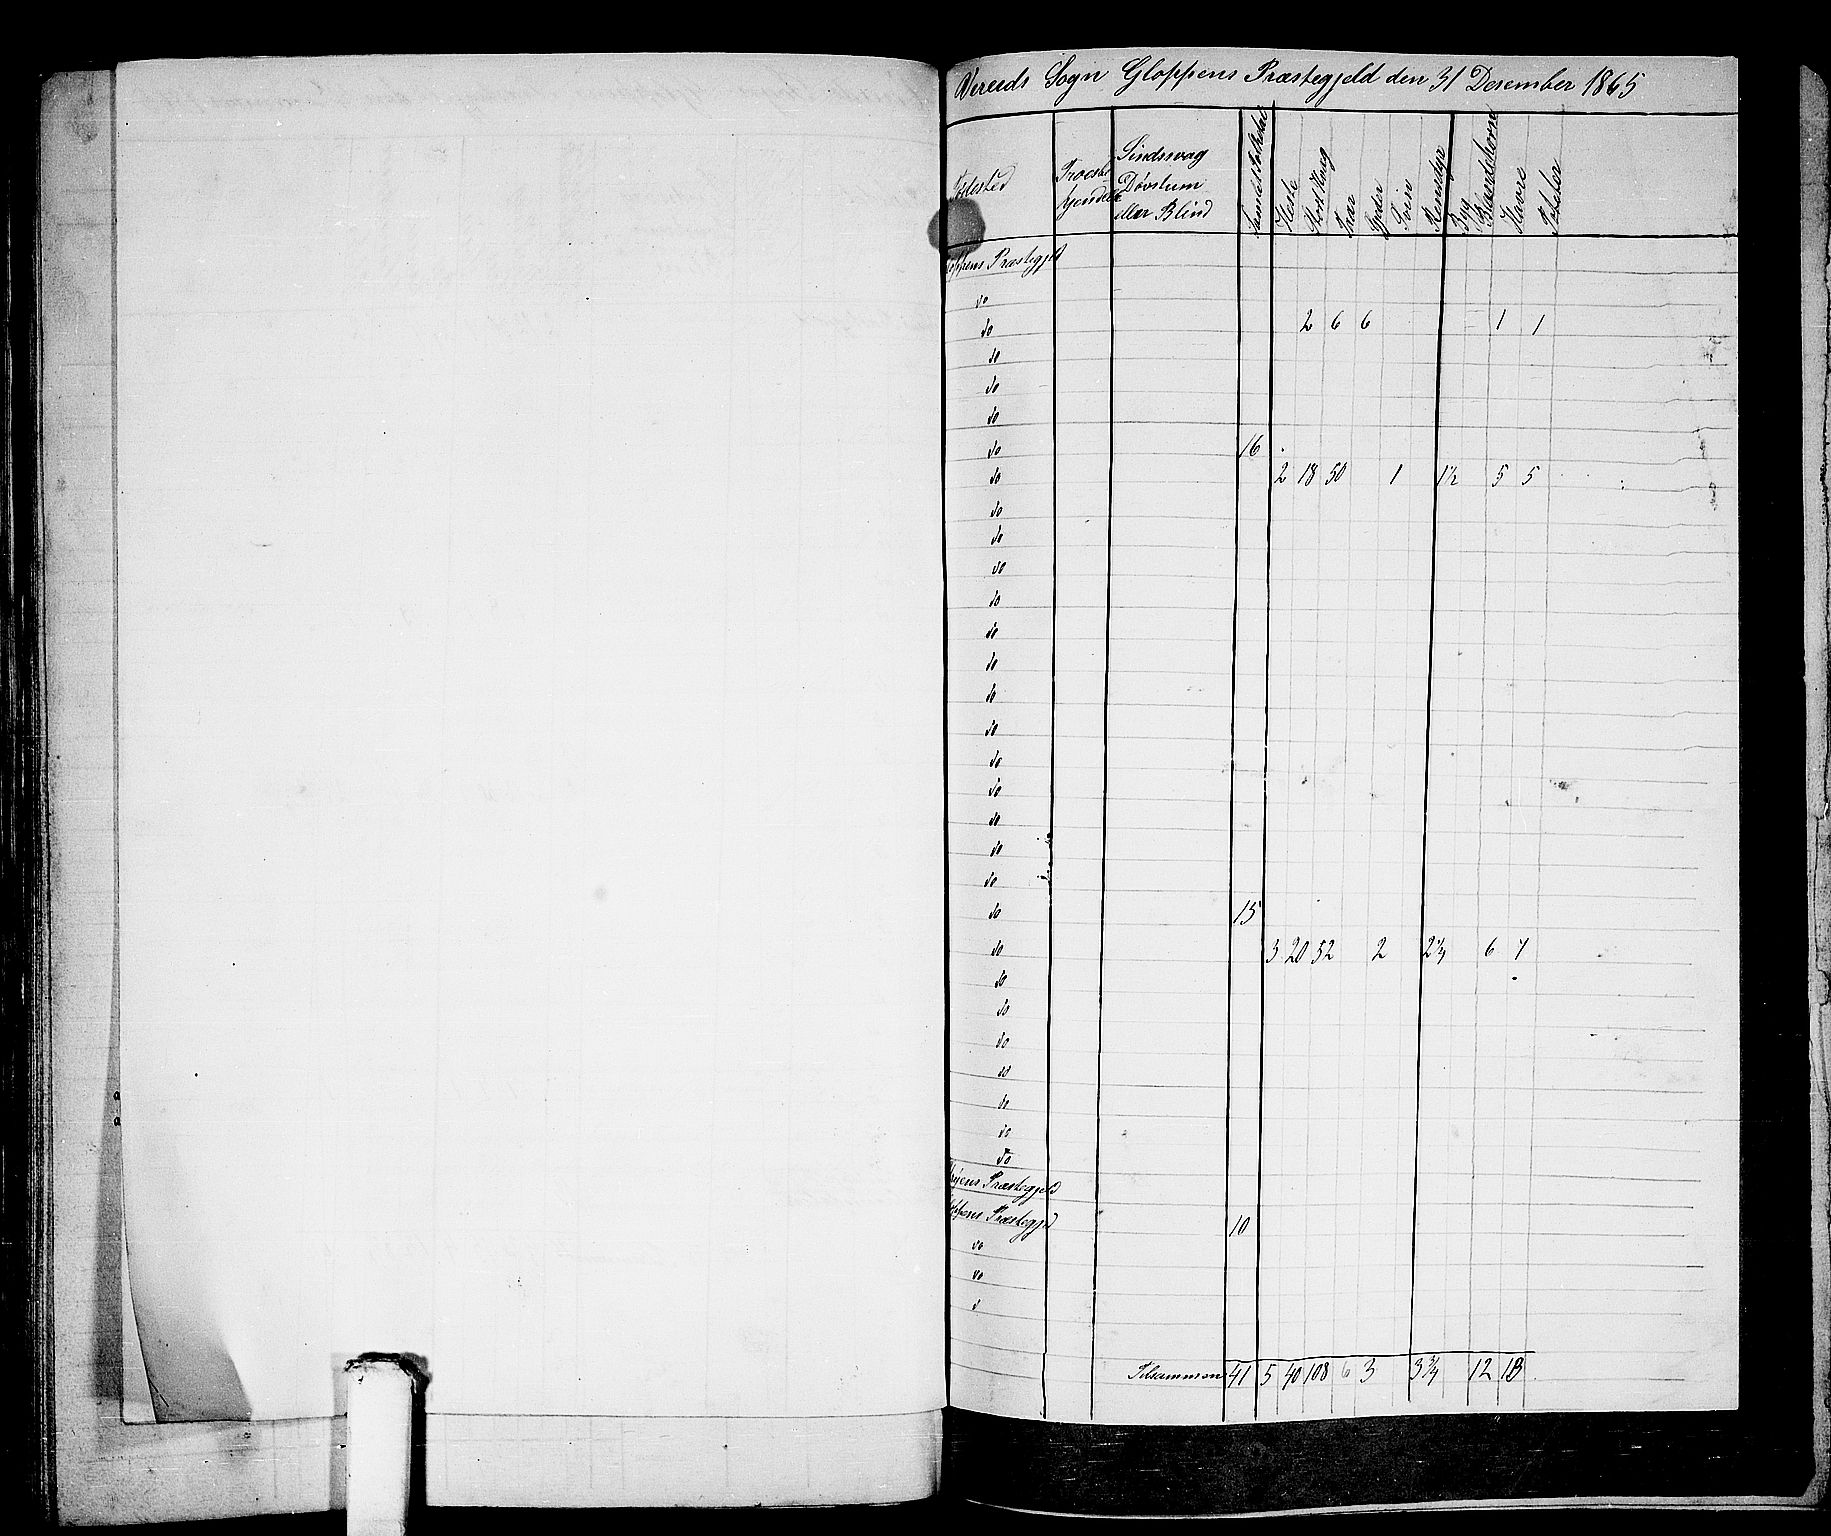 Vereeds Sogn Gloppens Præstegjeld den 31 Desember 1865
Troesbekjendelse
Sindsvag
Døvstum
eller Blind
Samlet Folketal
Heste
Stort Kvæg
Faar
Gjeder
Svin
Rensdyr
Byg
Blandekorn
Havre
Poteter
oppens Præstegjeld
do
do 2 6 6 1 1
do
do
do
do 16
do 2 18 50 1 1½ 5 5
do
do
do
do
do
do
do
do
do
do
do
do
do
do 15
do 3 20 52 2 2¼ 6 7
do
do
do
do
do
do
do
Præstegjeld
ppens Præstegjeld 10
do
do
d
Tilsammen 41 5 40 108 6 3 3¾ 12 13